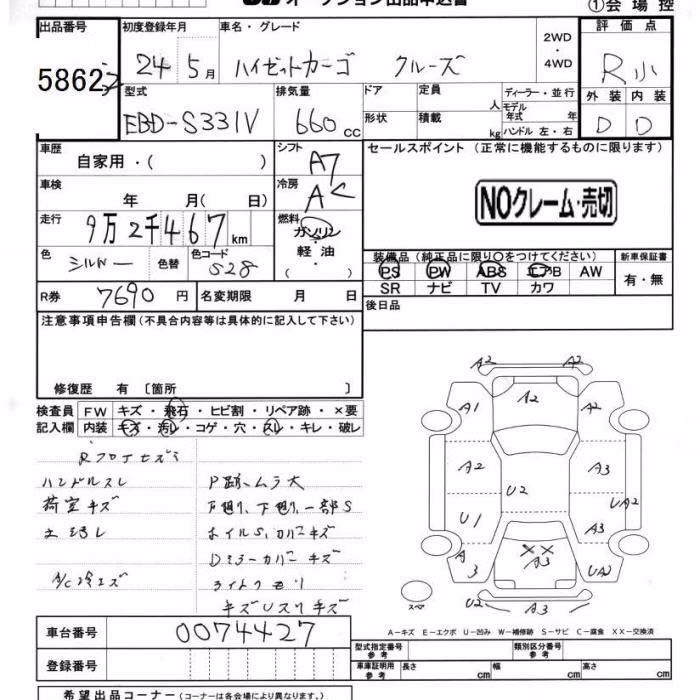 オークション出品申込書
①会場控
出品番号 初度登録年月 車名・グレード 2WD・4WD 評価点
5862 24 5月 ハイゼットカーゴ クルーズ R小
型式 排気量 ドア 定員 人 ディーラー・並行 外装 内装
EBD-S331V 660cc 形状 積載 kg モデル年式 年 ハンドル 左・右 D D
車歴 自家用・( ) シフト AT セールスポイント (正常に機能するものに限ります)
車検 年 月( 日) 冷房 AC NOクレーム・売切
走行 9万2千467km 燃料 ガソリン・軽油・( )
色 シルバー 色替 色コード S28
装備品 (純正品に限り○をつけてください) 新車保証書
PS PW ABS エアB AW 有・無
SR ナビ TV カワ
R券 7690円 名変期限 月 日 後日品
注意事項申告欄 (不具合内容等は具体的に記入して下さい)
修復歴 有 〔箇所 〕
検査員記入欄 FW キズ・飛石・ヒビ割・リペア跡・×要
内装 キズ・汚レ・コゲ・穴・スレ・キレ・破レ
ハンドルスレ
荷室キズ
A/C冷エズ
P跡、ムラ大
下廻り、下廻り一部S
ホイルS、カバーキズ
Dミラーカバーキズ
ライトクモリ
キズUスリキズ
A2 A2
A1 A2 A2
A2 A3
U2 UA2
U1 A3
A3 XX A3 UA2
スペア U2 A3
A-キズ E-エクボ U-凹み W-補修跡 S-サビ C-腐食 XX-交換済
車台番号 0074427
型式指定番号 参考 類別区分番号 参考
登録番号
車庫証明用 参考 長さ cm 幅 cm 高さ cm
希望出品コーナー (コーナーは各会場により異なります。)